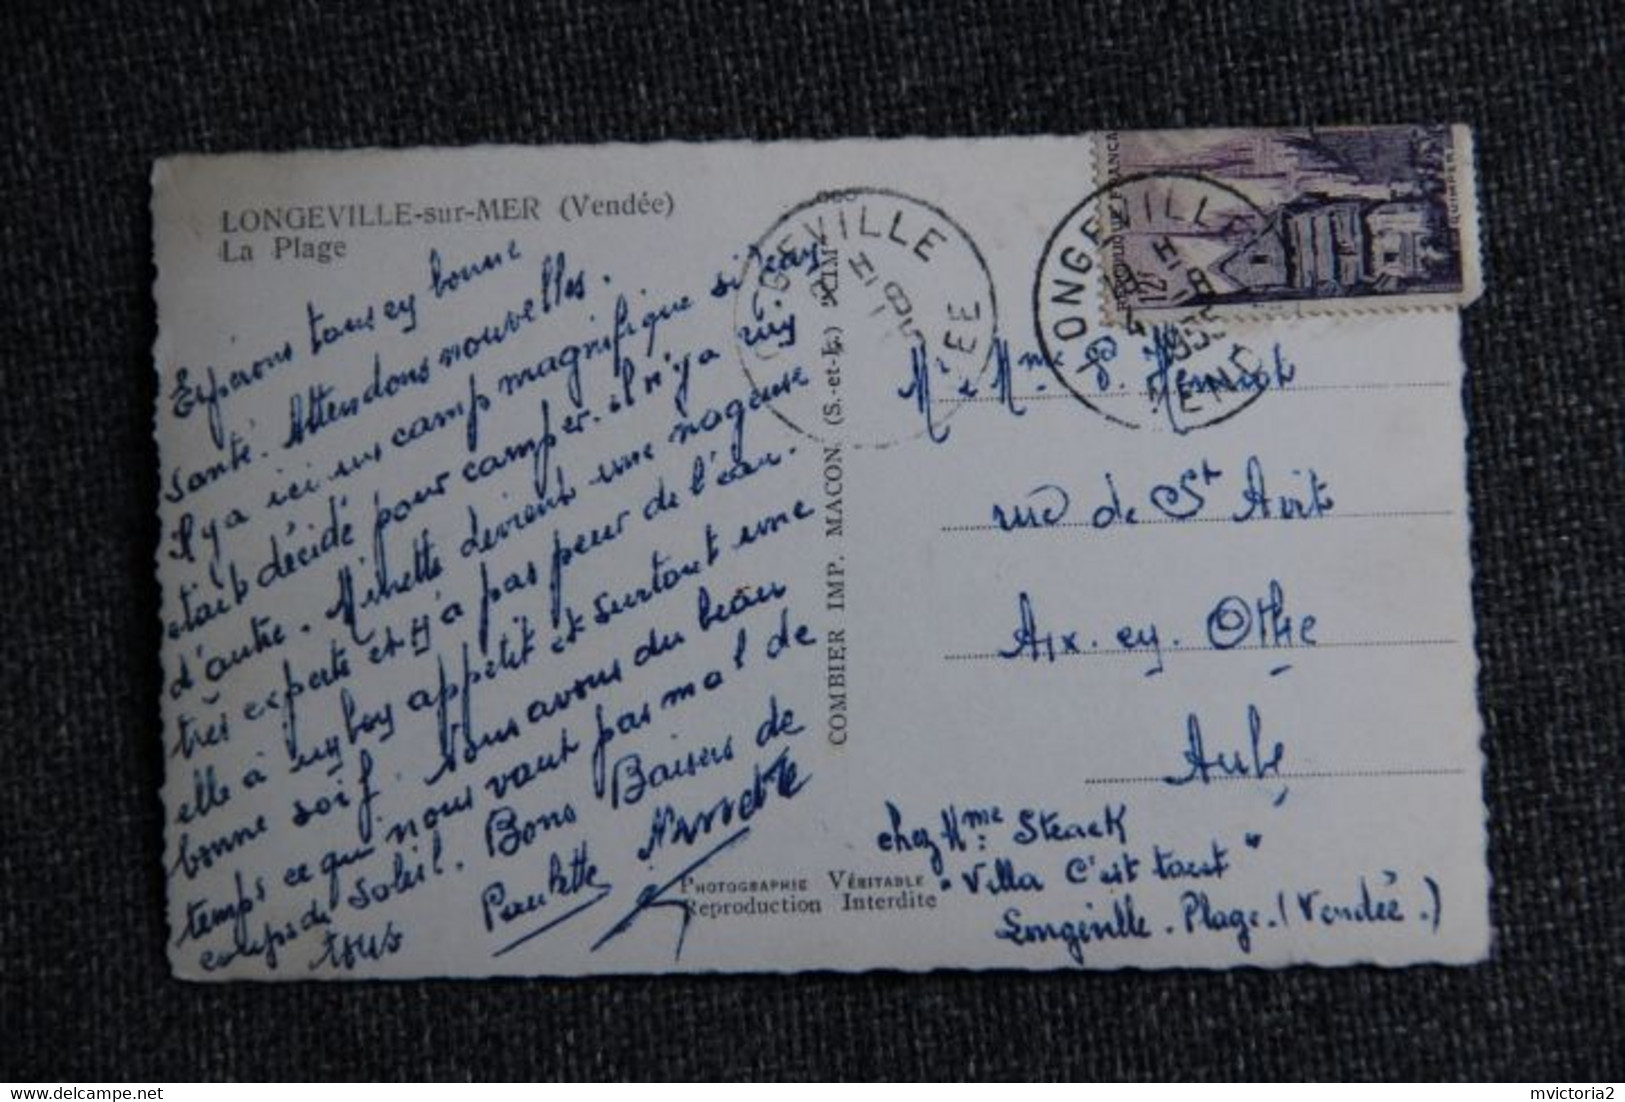 LONGEVILLE-sur-MER (Vendée)
La Plage
Espérons tous ey bonne
santé. Attendons nouvelles.
Il y a ici un camp magnifique si Jean
était décidé pour camper. il n'y a rien
d'autre. Minette devient une nageuse
très experte et n'a pas peur de l'eau.
elle a un bon appétit et surtout une
bonne soif. Nous avons du beau
temps ce qui nous vaut pas mal de
coups de soleil. Bons Baisers de
tous Paulette
COMBIER IMP. MACON (S.-et-L.) "CIM"
PHOTOGRAPHIE VÉRITABLE
Reproduction Interdite
LONGEVILLE
VENDEE
18 H
1955
REPUBLIQUE FRANCAISE
12F
QUIMPER
Mr & Mme S. Henriot
rue de St Avit
Aix. ey. Othe
Aube
chez Mme Steack
"Villa C'est tout"
Longeville. Plage. (Vendée.)
mvictoria2